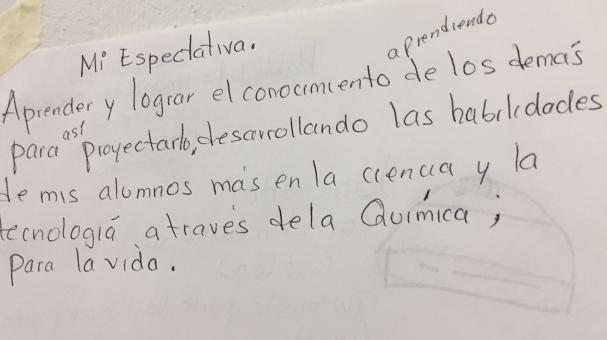 Mi Espectativa.
aprendiendo
Aprender y lograr el conocimiento de los demás
para así proyectarlo, desarrollando las habilidades
de mis alumnos más en la ciencia y la
tecnologiá a través dela Química,
para la vida.